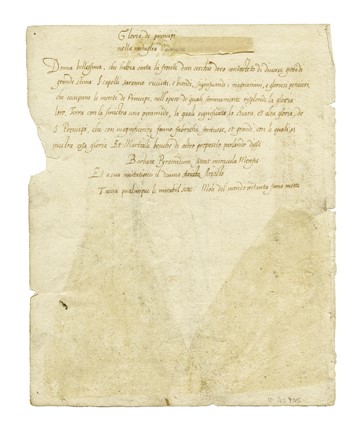 Gloria de prencipi
nella medaglia d'Adriano
Donna bellissima, che habbia cinta la fronte d'un cerchio d'oro contesto di diverse gioie di
grande stima. I capelli saranno ricciuti, e biondi, significando i magnanimi, e gloriosi pensieri,
che occupano le menti de' Prencipi, nell'opere de quali sommamente risplende la gloria
loro. Terrà con la sinistra una piramide, la quale significa la chiara, et alta gloria, de
i Prencipi, che con magnificenza fanno fabriche sontuose, et grandi, con le quali si
mostra essa gloria. Et Martiale benche di altro proposito parlando disse
Barbara Pyramidum sileat miracula Memphis
Et a sua imitatione il divino Ariosto
Taccia qualunque le mirabil sette Moli del mondo in tanta fama mette